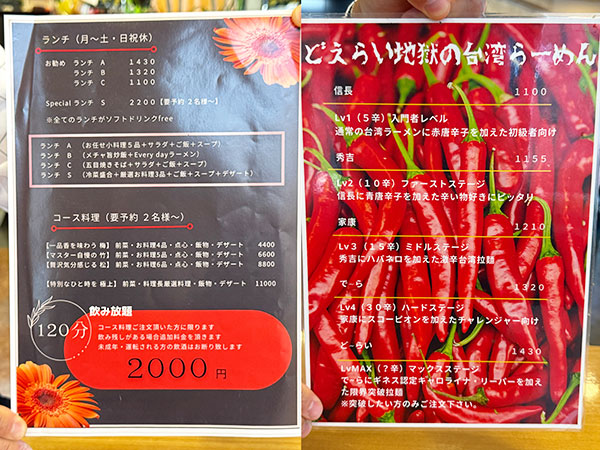 ランチ（月〜土・日祝休）
お勧め ランチ A 1430
ランチ B 1320
ランチ C 1100
Special ランチ S 2200【要予約 2名様〜】
※全てのランチがソフトドリンクfree
ランチ A （お任せ小料理5品＋サラダ＋ご飯＋スープ）
ランチ B （メチャ旨炒飯＋Every dayラーメン）
ランチ C （五目焼きそば＋サラダ＋ご飯＋スープ）
ランチ S （冷菜盛合＋厳選お料理3品＋ご飯＋スープ＋デザート）
コース料理（要予約 2名様〜）
【一品香を味わう 梅】 前菜・お料理4品・点心・飯物・デザート 4400
【マスター自慢の 竹】 前菜・お料理5品・点心・飯物・デザート 6600
【贅沢気分感じる 松】 前菜・お料理6品・点心・飯物・デザート 8800
【特別なひと時を 極上】 前菜・料理長厳選料理・飯物・デザート 11000
飲み放題
120分
コース料理ご注文頂いた方に限ります
飲み残しがある場合追加料金を頂きます
未成年・運転される方の飲酒はお断り致します
2000円
どえらい地獄の台湾らーめん
信長 1100
Lv1（5辛）入門者レベル
通常の台湾ラーメンに赤唐辛子を加えた初級者向け
秀吉 1155
Lv2（10辛）ファーストステージ
信長に青唐辛子を加えた辛い物好きにピッタリ
家康 1210
Lv3（15辛）ミドルステージ
秀吉にハバネロを加えた激辛台湾拉麺
で〜ら 1320
Lv4（30辛）ハードステージ
家康にスコーピオンを加えたチャレンジャー向け
ど〜らい 1430
LvMAX（？辛）マックスステージ
で〜らにギネス認定キャロライナ・リーパーを加え
た限界突破拉麺
※突破したい方のみご注文下さい。